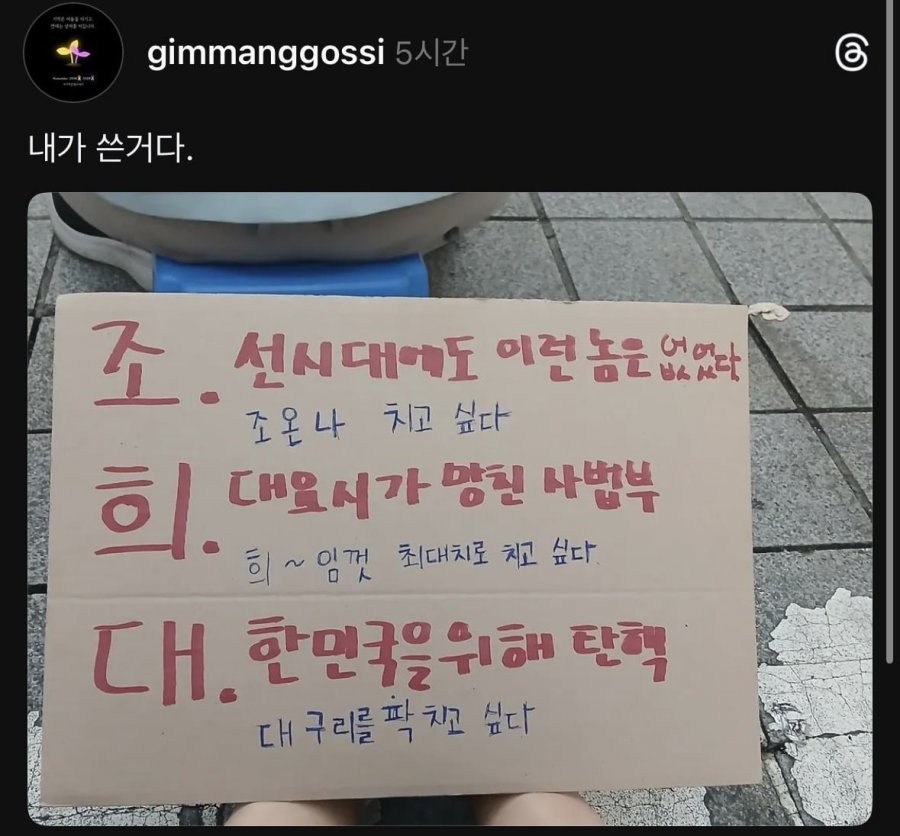 gimmanggossi 5시간
내가 쓴거다.
조. 선시대에도 이런 놈은 없었다
조온나 치고 싶다
희. 대요시가 망친 사법부
희~임껏 최대치로 치고 싶다
대. 한민국을위해 탄핵
대구리를 팍 치고 싶다